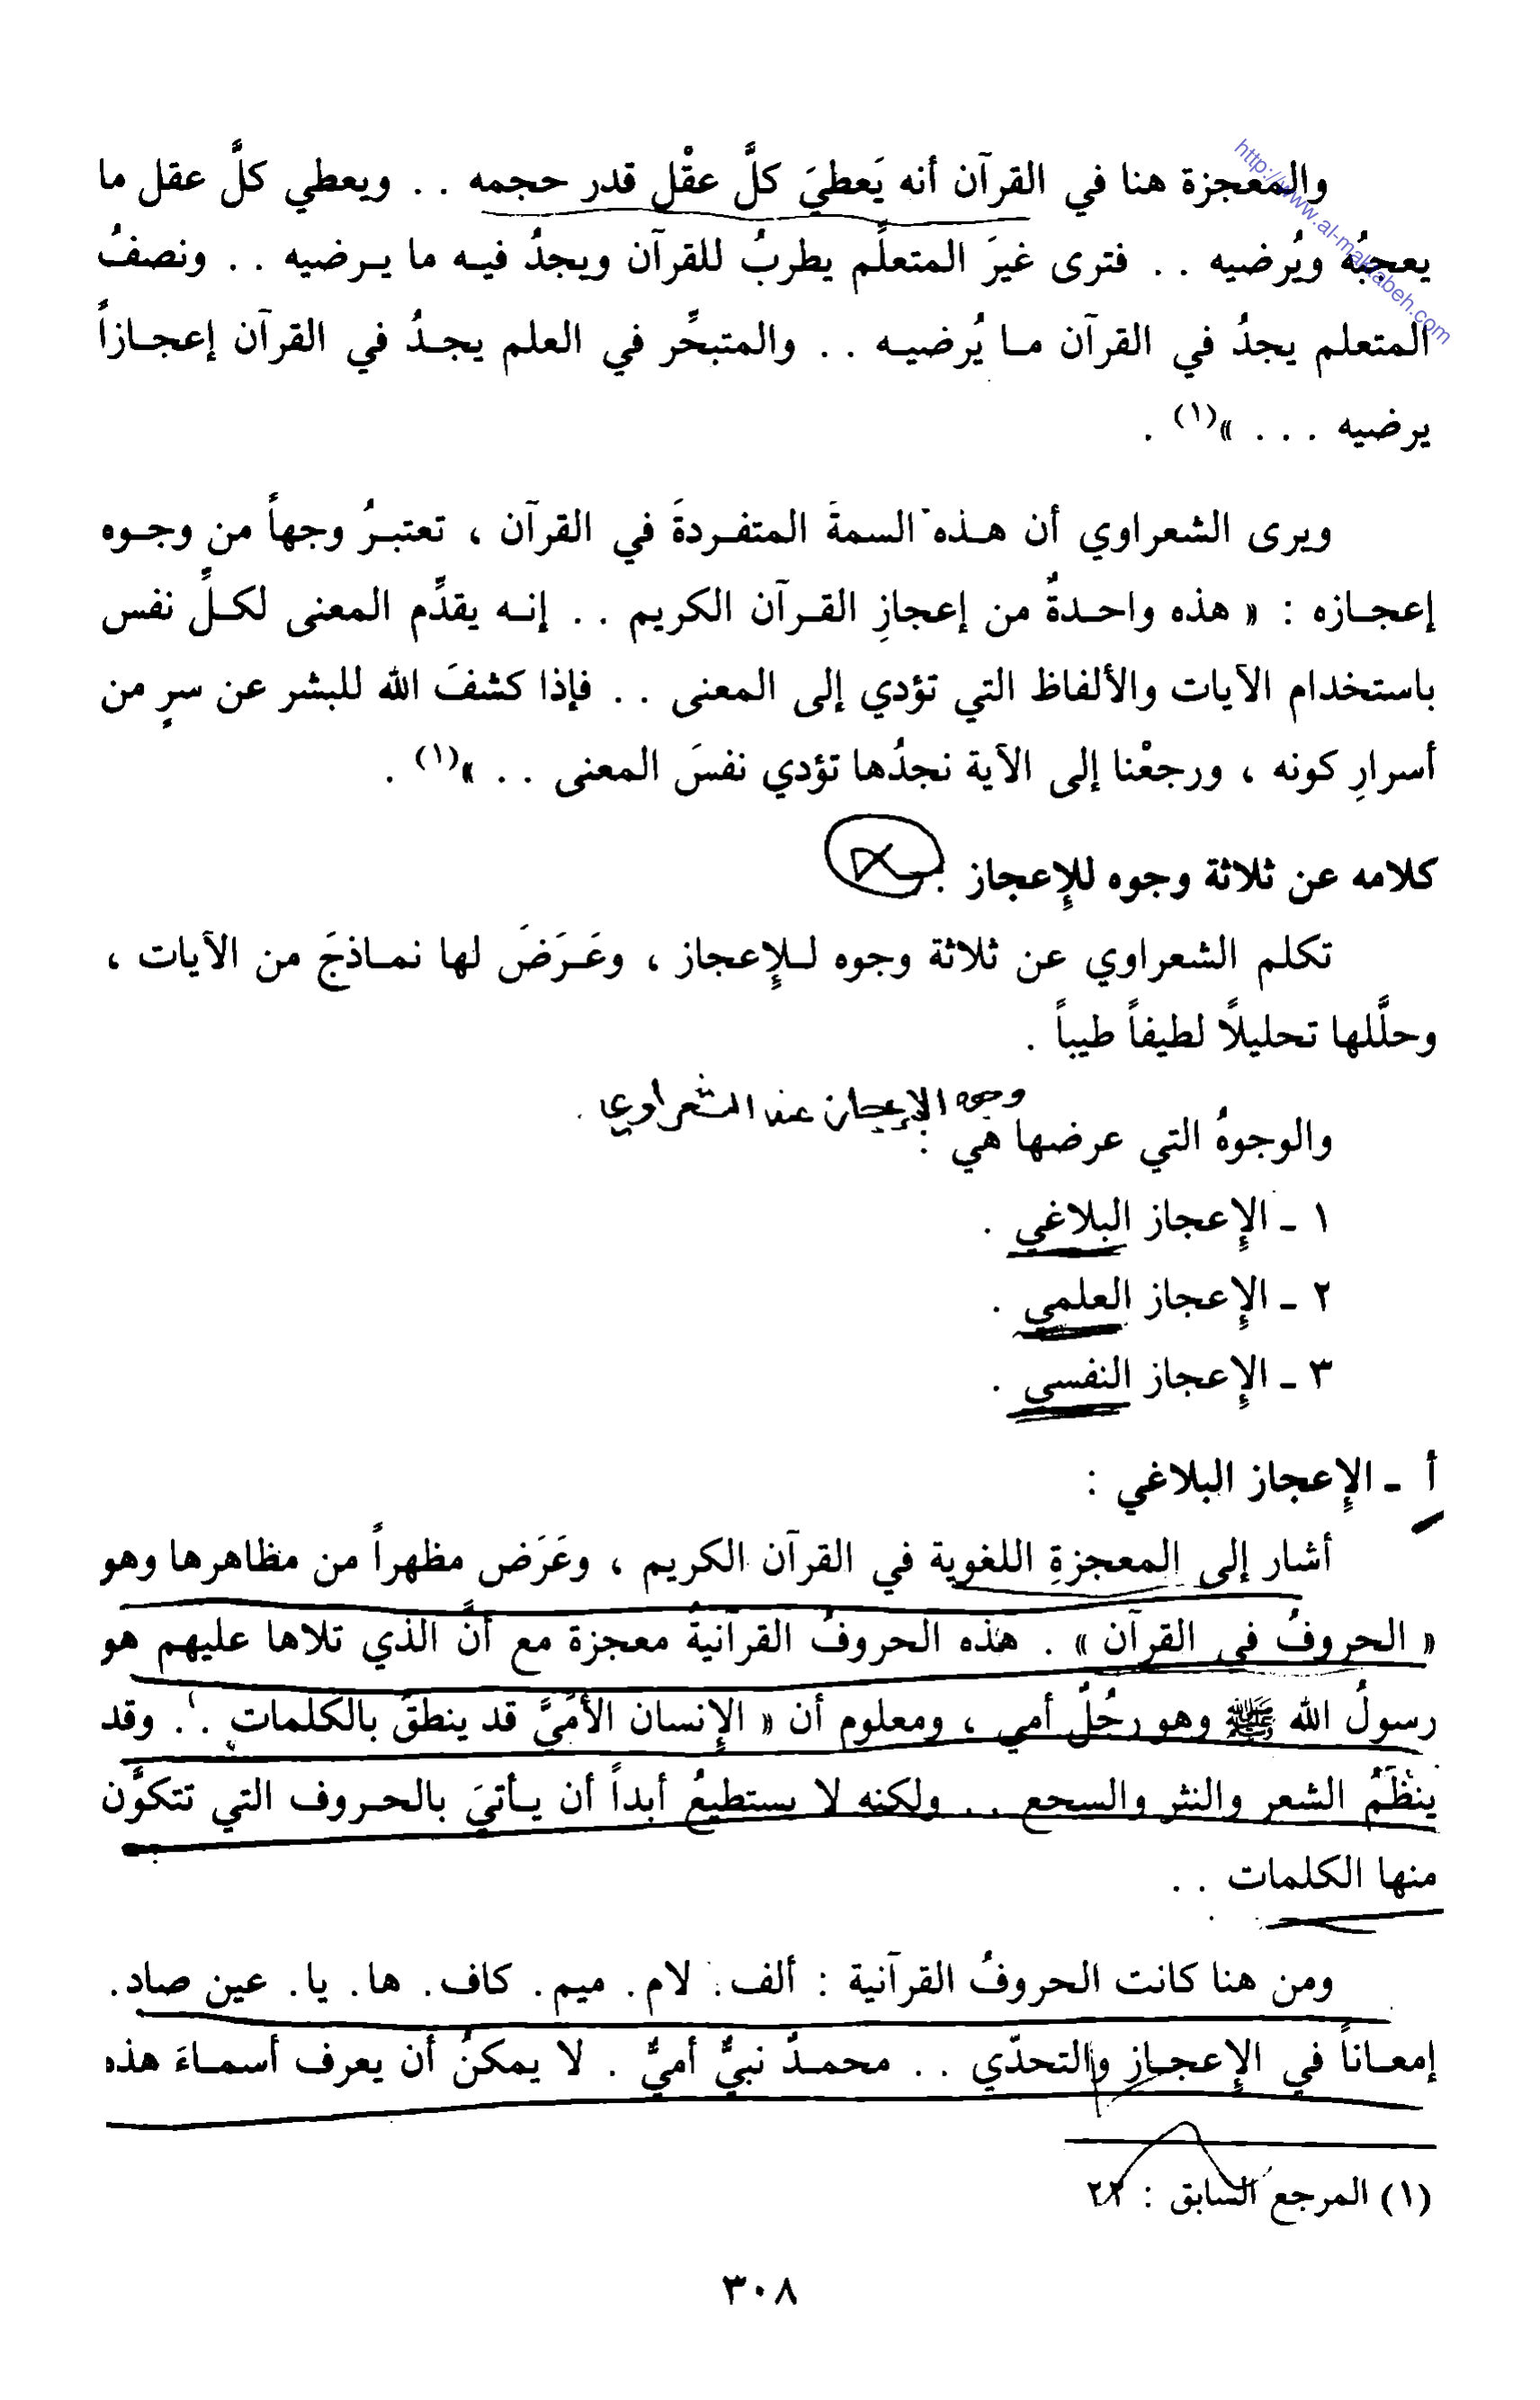 http://www.al-maktabeh.com
والمعجزة هنا في القرآن أنه يَعطيَ كلَّ عقْلٍ قدر حجمه . . ويعطي كلَّ عقل ما
يعجبُه ويُرضيه . . فترى غيرَ المتعلِّم يطربُ للقرآن ويجدُ فيـه ما يـرضيه . . ونصفُ
المتعلم يجدُ في القرآن مـا يُرضيـه . . والمتبحِّر في العلم يجـدُ في القرآن إعجـازاً
يرضيه . . . »(١) .
ويرى الشعراوي أن هـذه السمةَ المتفـردةَ في القرآن ، تعتبـرُ وجهاً من وجـوه
إعجـازه : « هذه واحـدةٌ من إعجازِ القـرآن الكريم . . إنـه يقدِّم المعنى لكـلِّ نفس
باستخدام الآيات والألفاظ التي تؤدي إلى المعنى . . فإذا كشفَ الله للبشر عن سرٍ من
أسرارِ كونه ، ورجعْنا إلى الآية نجدُها تؤدي نفسَ المعنى . . »(١) .
كلامه عن ثلاثة وجوه للإِعجاز :
تكلم الشعراوي عن ثلاثة وجوه لـلإِعجاز ، وعَـرَضَ لها نمـاذجَ من الآيات ،
وحلَّلها تحليلًا لطيفاً طيباً .
وجوه الإعجاز عند الشعراوي .
والوجوهُ التي عرضها هي :
١ - الإِعجاز البلاغي .
٢ - الإِعجاز العلمي .
٣ - الإِعجاز النفسي .
أ - الإِعجاز البلاغي :
أشار إلى المعجزةِ اللغوية في القرآن الكريم ، وعَرَض مظهراً من مظاهرها وهو
« الحروفُ في القرآن » . هذه الحروفُ القرآنيةُ معجزة مع أنَّ الذي تلاها عليهم هو
رسولُ الله ﷺ وهو رجُلٌ أمي ، ومعلوم أن « الإِنسان الأمِّيَّ قد ينطقُ بالكلمات . . وقد
ينظُمُ الشعر والنثر والسجع . . ولكنه لا يستطيعُ أبداً أن يـأتيَ بالحـروف التي تتكوَّن
منها الكلمات . .
ومن هنا كانت الحروفُ القرآنية : ألف. لام. ميم. كاف. ها. يا. عين صاد.
إمعـاناً في الإِعجـاز والتحدّي . . محمـدٌ نبيٌّ أميٌّ . لا يمكنُ أن يعرف أسمـاءَ هذه
(١) المرجع السابق : ٢٢
٣٠٨